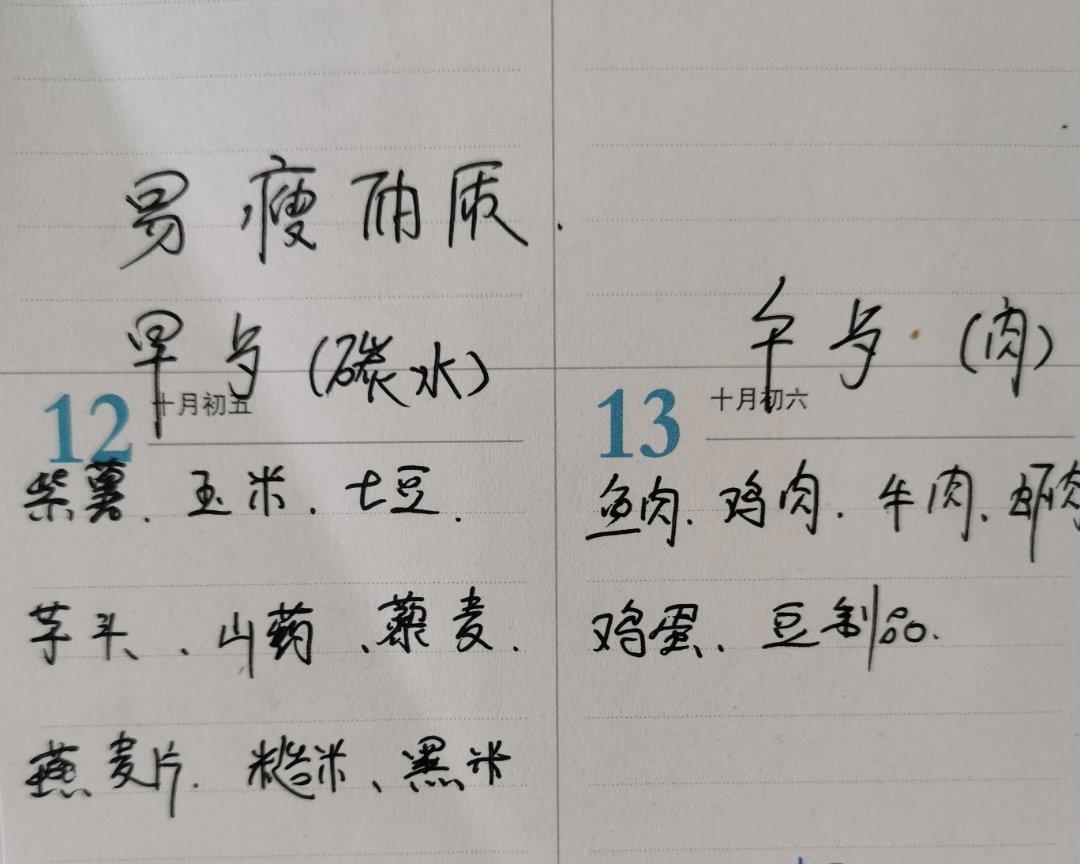 易瘦质.
早歺(碳水)
12 十月初五
紫薯、玉米、土豆.
芋头、山药、藜麦.
燕麦片.糙米、黑米
午歺(肉)
13 十月初六
鱼肉.鸡肉.牛肉、虾肉
鸡蛋、豆制品.